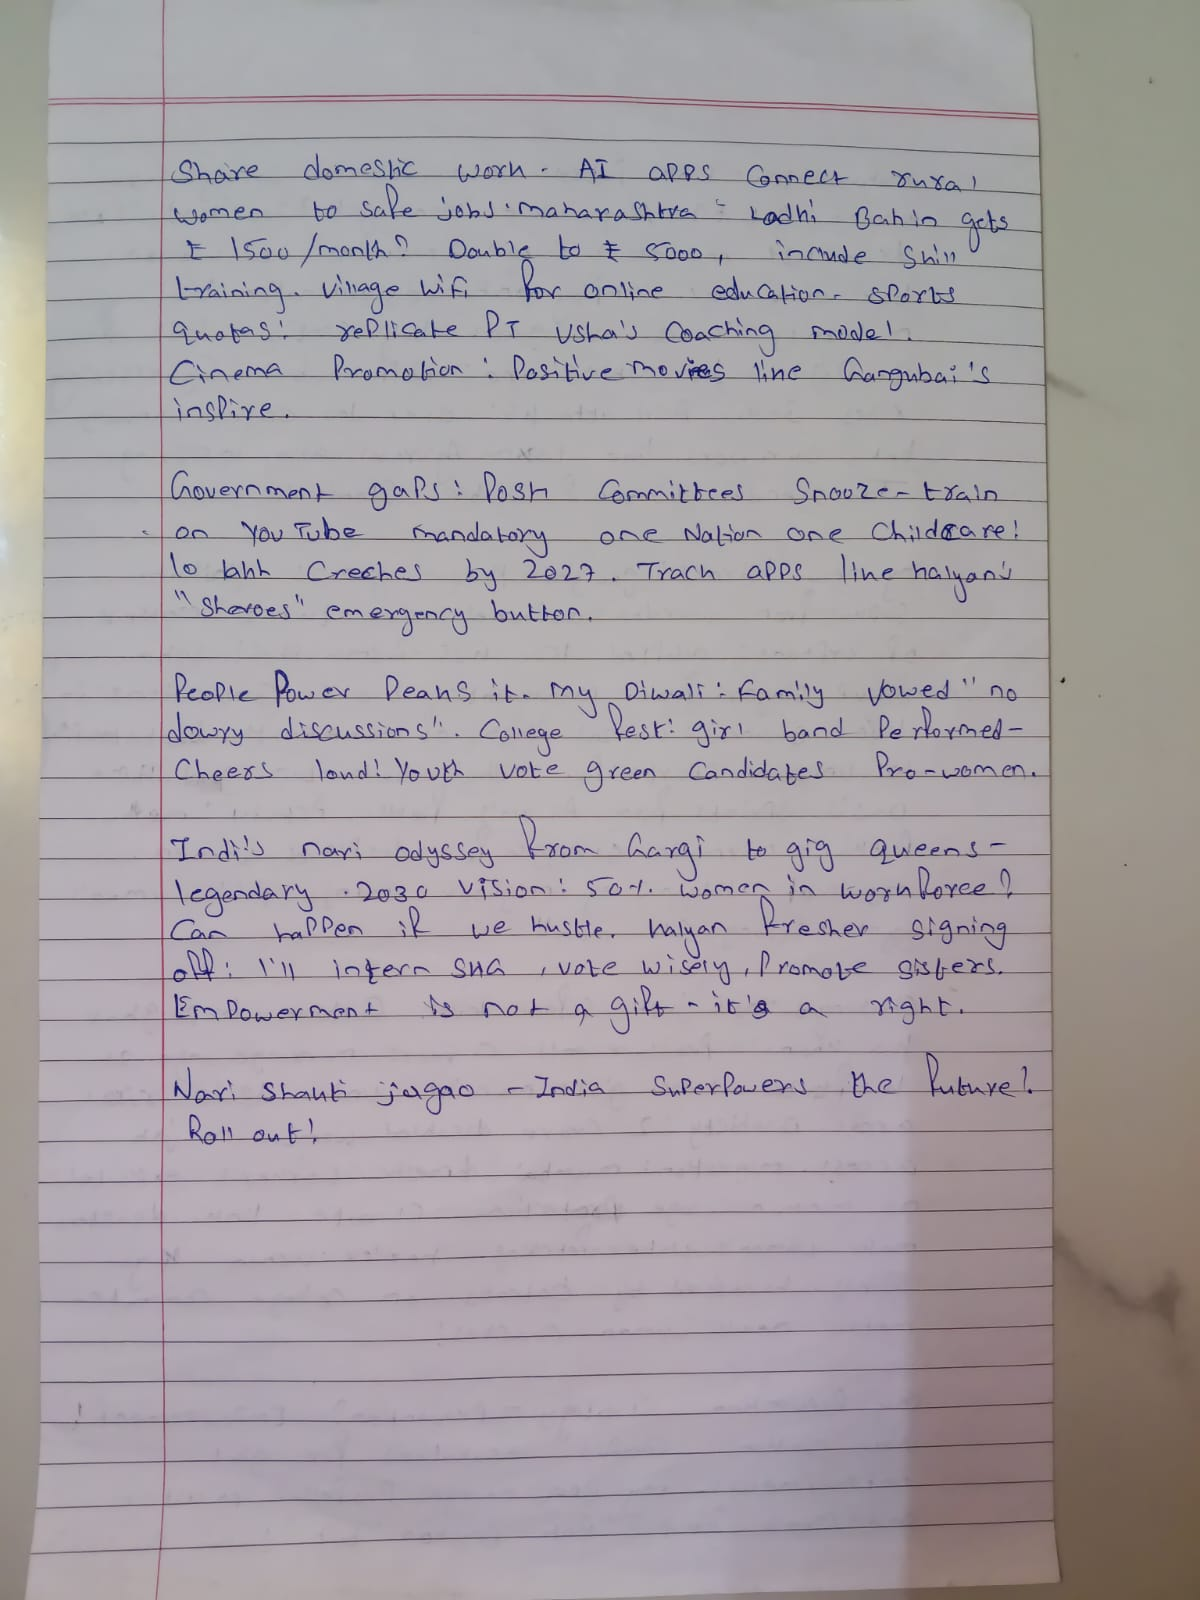 Share domestic work - AI apps connect rural
women to safe jobs. Maharashtra - Ladhi Bahin gets
₹ 1500/month? Double to ₹ 5000, include skill
training. Village WiFi for online education - sports
quotas: replicate PT Usha's coaching model.
Cinema Promotion: Positive movies like Gangubai's
inspire.
Government gaps: Posh Committees Snooze-train
on YouTube mandatory one Nation one Childcare!
10 lakh Creches by 2027. Track apps like kalyan's
"Sheroes" emergency button.
People Power Peaks it. My Diwali: Family vowed "no
dowry discussions". College fest: girl band Performed-
Cheers loud! Youth vote green Candidates Pro-women.
Indi's nari odyssey from Gargi to gig queens-
legendary. 2030 Vision: 50% women in workforce?
Can happen if we hustle. kalyan fresher signing
off: I'll intern SHG, vote wisely, Promote sisters.
Empowerment is not a gift - it's a right.
Nari Shakti jagao - India SuperPowers the future!
Roll out!